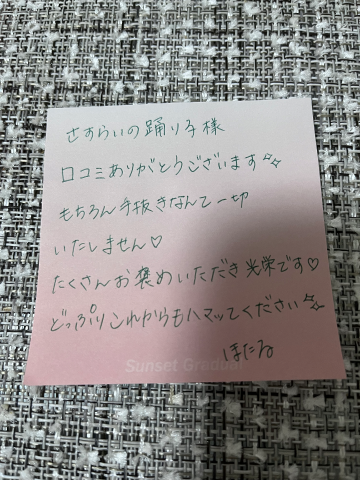 さすらいの踊り子様
口コミありがとうございます✨
もちろん手抜きなんて一切
いたしません♡
たくさんお褒めいただき光栄です♡
どっぷりこれからもハマッてください✨
ほたる
Sunset Gradual